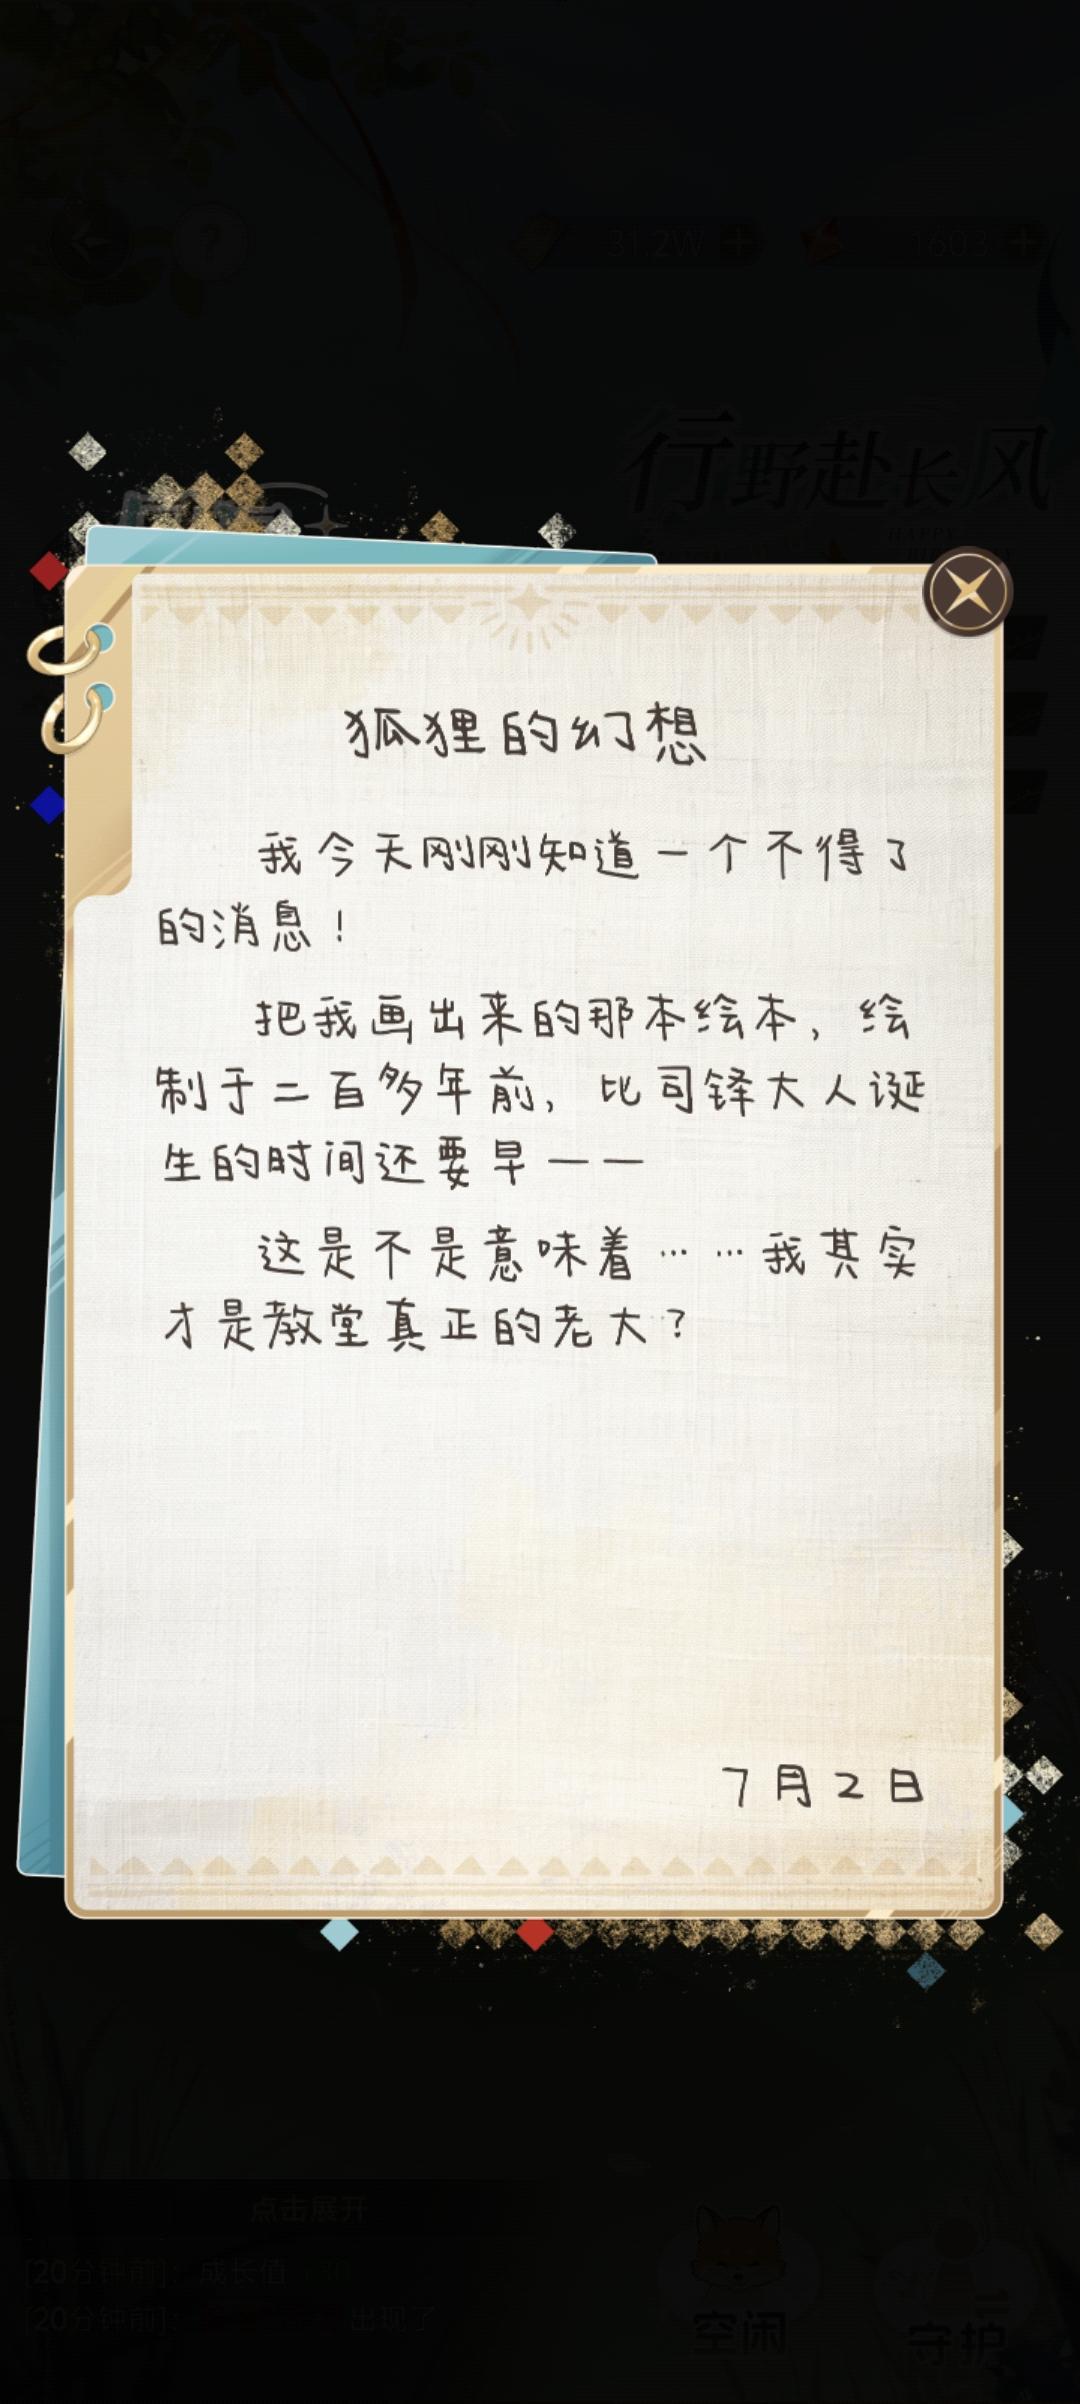 31.2W
1603
行野赴长风
HAPPY
狐狸的幻想
我今天刚刚知道一个不得了
的消息！
把我画出来的那本绘本，绘
制于二百多年前，比司铎大人诞
生的时间还要早——
这是不是意味着……我其实
才是教堂真正的老大？
7月2日
点击展开
[20分钟前]：成长值
[20分钟前]：
出现了
空闲
守护